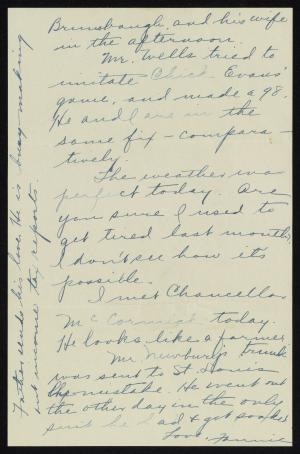 Brumbaugh and his wife
in the afternoon.
Mr. Wells tried to
imitate Chick Evans'
game, and made a 98.
He and I are in the
same fix – compara –
tively.
The weather was
perfect today. Are
you sure I used to
get tired last month,
I don't see how it's
possible.
I met Chancellor
McCormick today.
He looks like a farmer.
Mr. Newburg's trunk
was sent to St. Louis
by mistake. He went out
the other day in the only
suit he had & got soaked
Love, Fannie
Father sends his love. He is busy making
out income tax report.